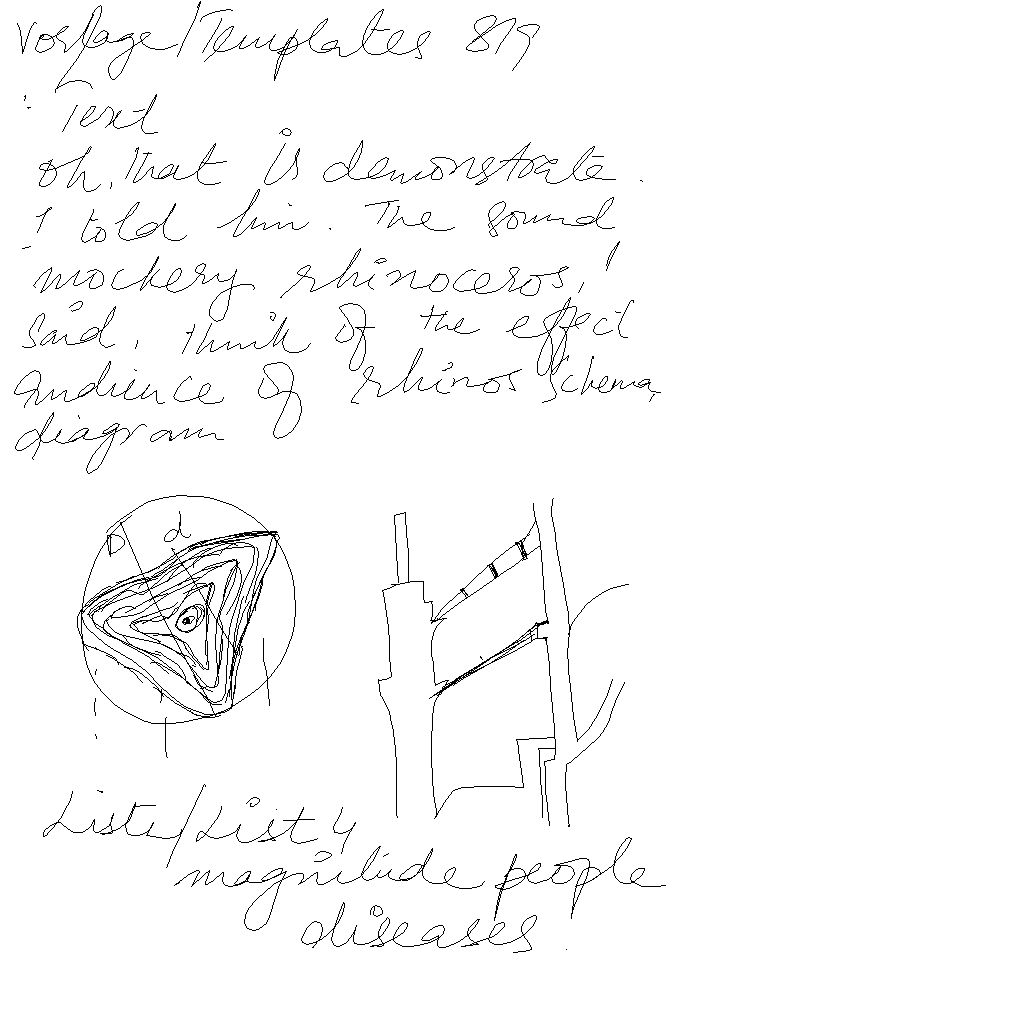 Vorlage/Templates 819
: Text
oh, that is demonstrate.
I told him. The sound
mockery rhinoceros, I
said, think of the effect
audience of rhinos schema,
diagram
D d
Liste/List 4
magnitude people
diseases.